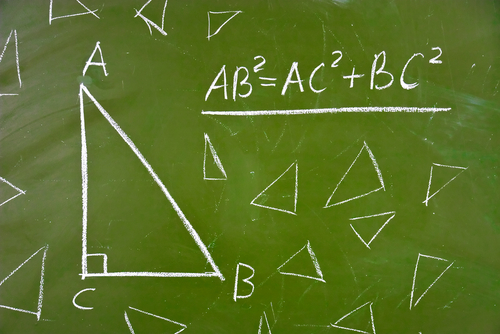 A
AB²=AC²+BC²
C
B